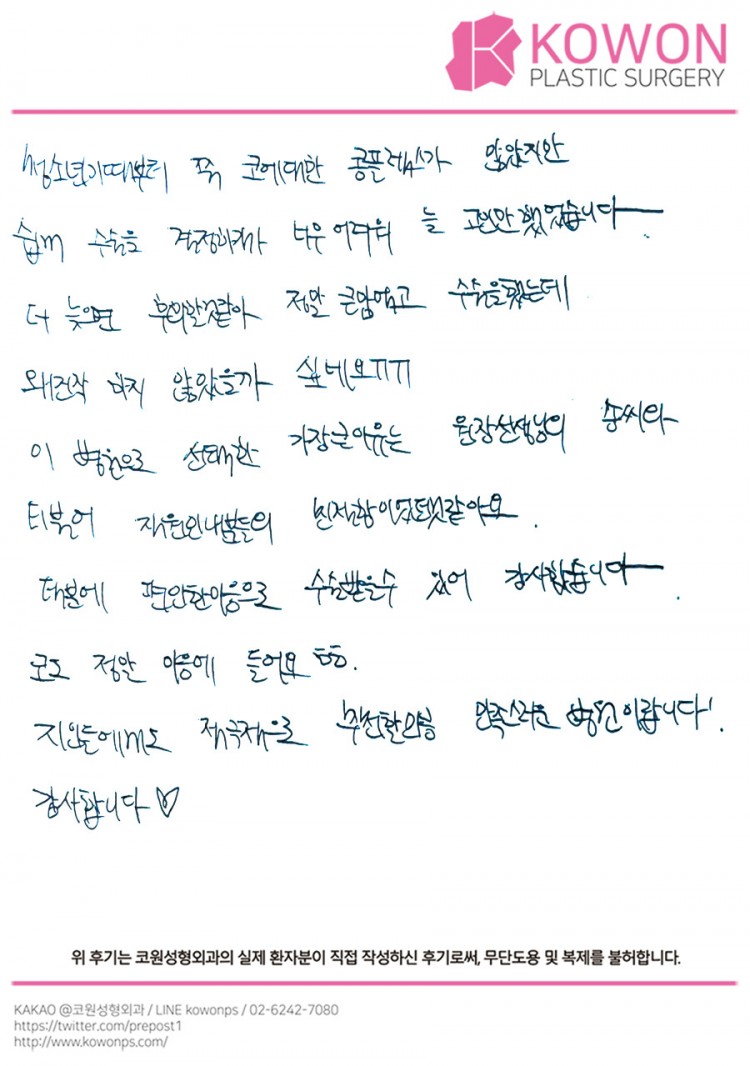 KOWON
PLASTIC SURGERY
청소년기때부터 쭉 코에대한 콤플렉스가 많았지만
쉽게 수술을 결정하기가 너무 어려워 늘 고민만 했었습니다
더 늦으면 후회할것같아 정말 큰맘먹고 수술을했는데
왜진작 하지 않았을까 싶네요ㅠㅠ
이 병원으로 선택한 가장큰이유는 원장선생님의 솜씨와
더불어 직원안내분들의 친절함이었던것같아요.
덕분에 편안한마음으로 수술받을수 있어 감사했습니다.
코도 정말 마음에 들어요ㅎㅎ.
지인들에게도 적극적으로 추천할만큼 만족스러운 병원이랍니다!
감사합니다♡
위 후기는 코원성형외과의 실제 환자분이 직접 작성하신 후기로써, 무단도용 및 복제를 불허합니다.
KAKAO @코원성형외과 / LINE kowonps / 02-6242-7080
https://twitter.com/prepost1
http://www.kowonps.com/